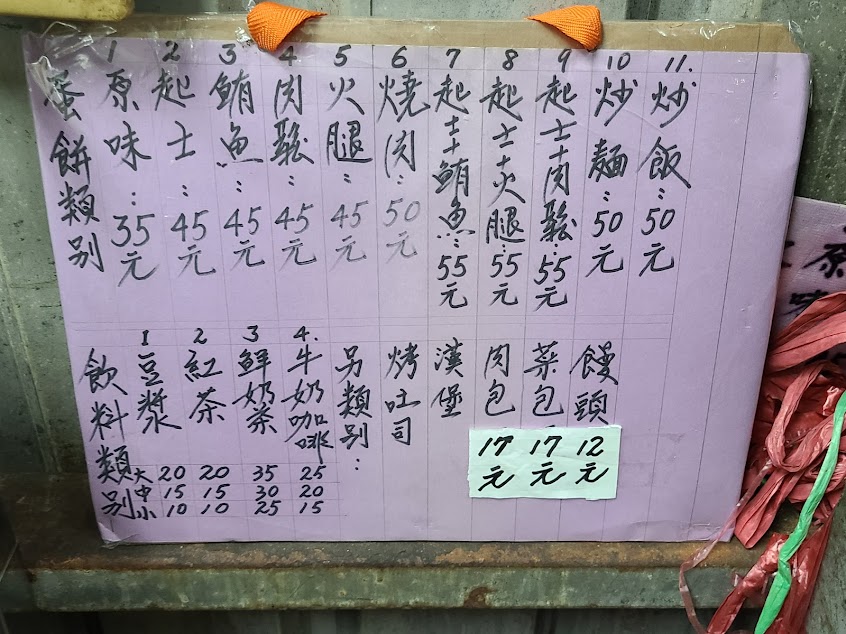 蛋餅類別
1 原味:35元
2 起士:45元
3 鮪魚:45元
4 肉鬆:45元
5 火腿:45元
6 燒肉:50元
7 起士+鮪魚:55元
8 起士+火腿:55元
9 起士+肉鬆:55元
10 炒麵:50元
11. 炒飯:50元
飲料類別 大 中 小
1 豆漿 20 15 10
2 紅茶 20 15 10
3 鮮奶茶 35 30 25
4. 牛奶咖啡 25 20 15
另類別:
烤吐司
漢堡
肉包 17元
菜包 17元
饅頭 12元
原味